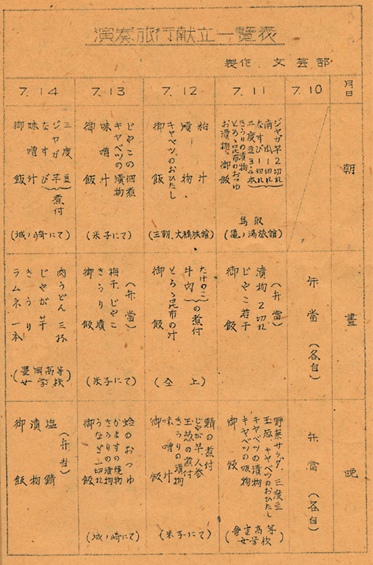 演奏旅行献立一覧表
製作 文芸部
月日
7.10
7.11
7.12
7.13
7.14
朝
ジャガ芋2切れ
南瓜1切れ
なすび1切れ
三度豆3, 4本
きうりの漬物
とろろ昆布のおつゆ
お漬物、御飯
鳥取
(亀の湯旅館)
粕汁
漬物
キャベツのおひたし
御飯
(三朝、大橋旅館)
じやこの佃煮
キャベツの漬物
味噌汁
御飯
(米子にて)
三度豆
ジャガ芋
なすび
(煮付)
味噌汁
御飯
(城ノ崎にて)
昼
弁当
(各自)
(弁当)
漬物2切れ
じやこ若干
御飯
たけのこ
牛肉
の煮付
とろろ昆布の汁
御飯
(仝上)
(弁当)
梅干、じやこ
きうり漬
御飯
(米子にて)
肉うどん 三杯
じやが芋
きうり
ラムネ一本
(豊岡高等女学校)
晩
弁当
(各自)
野菜サラダ、三度豆
玉葱、キャベツのおひたし
キャベツの漬物
キャベツの味物
御飯
高等女学校)
の煮付
じやが芋、人参
玉葱の煮付
きうりの漬物
味噌汁
御飯
(米子にて)
蛤のおつゆ
かますの焼物
きうりの漬物
うなぎ二切
御飯
(城ノ崎にて)
(弁当)
塩鯖
漬物
御飯